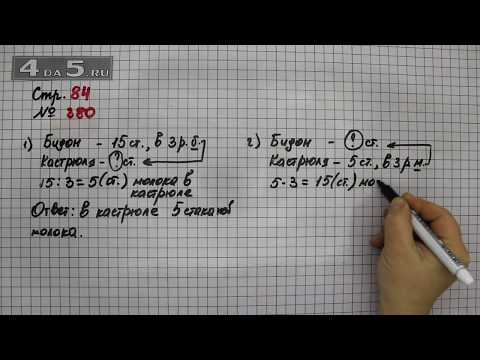 4DA5.RU
Стр. 84
№ 380
1) Бидон - 15 ст., в 3 р. б.
Кастрюля - ? ст.
15 : 3 = 5 (ст.) молока в
кастрюле
Ответ: в кастрюле 5 стаканов
молока.
2) Бидон - ? ст.
Кастрюля - 5 ст., в 3 р. м.
5 · 3 = 15 (ст.) мо